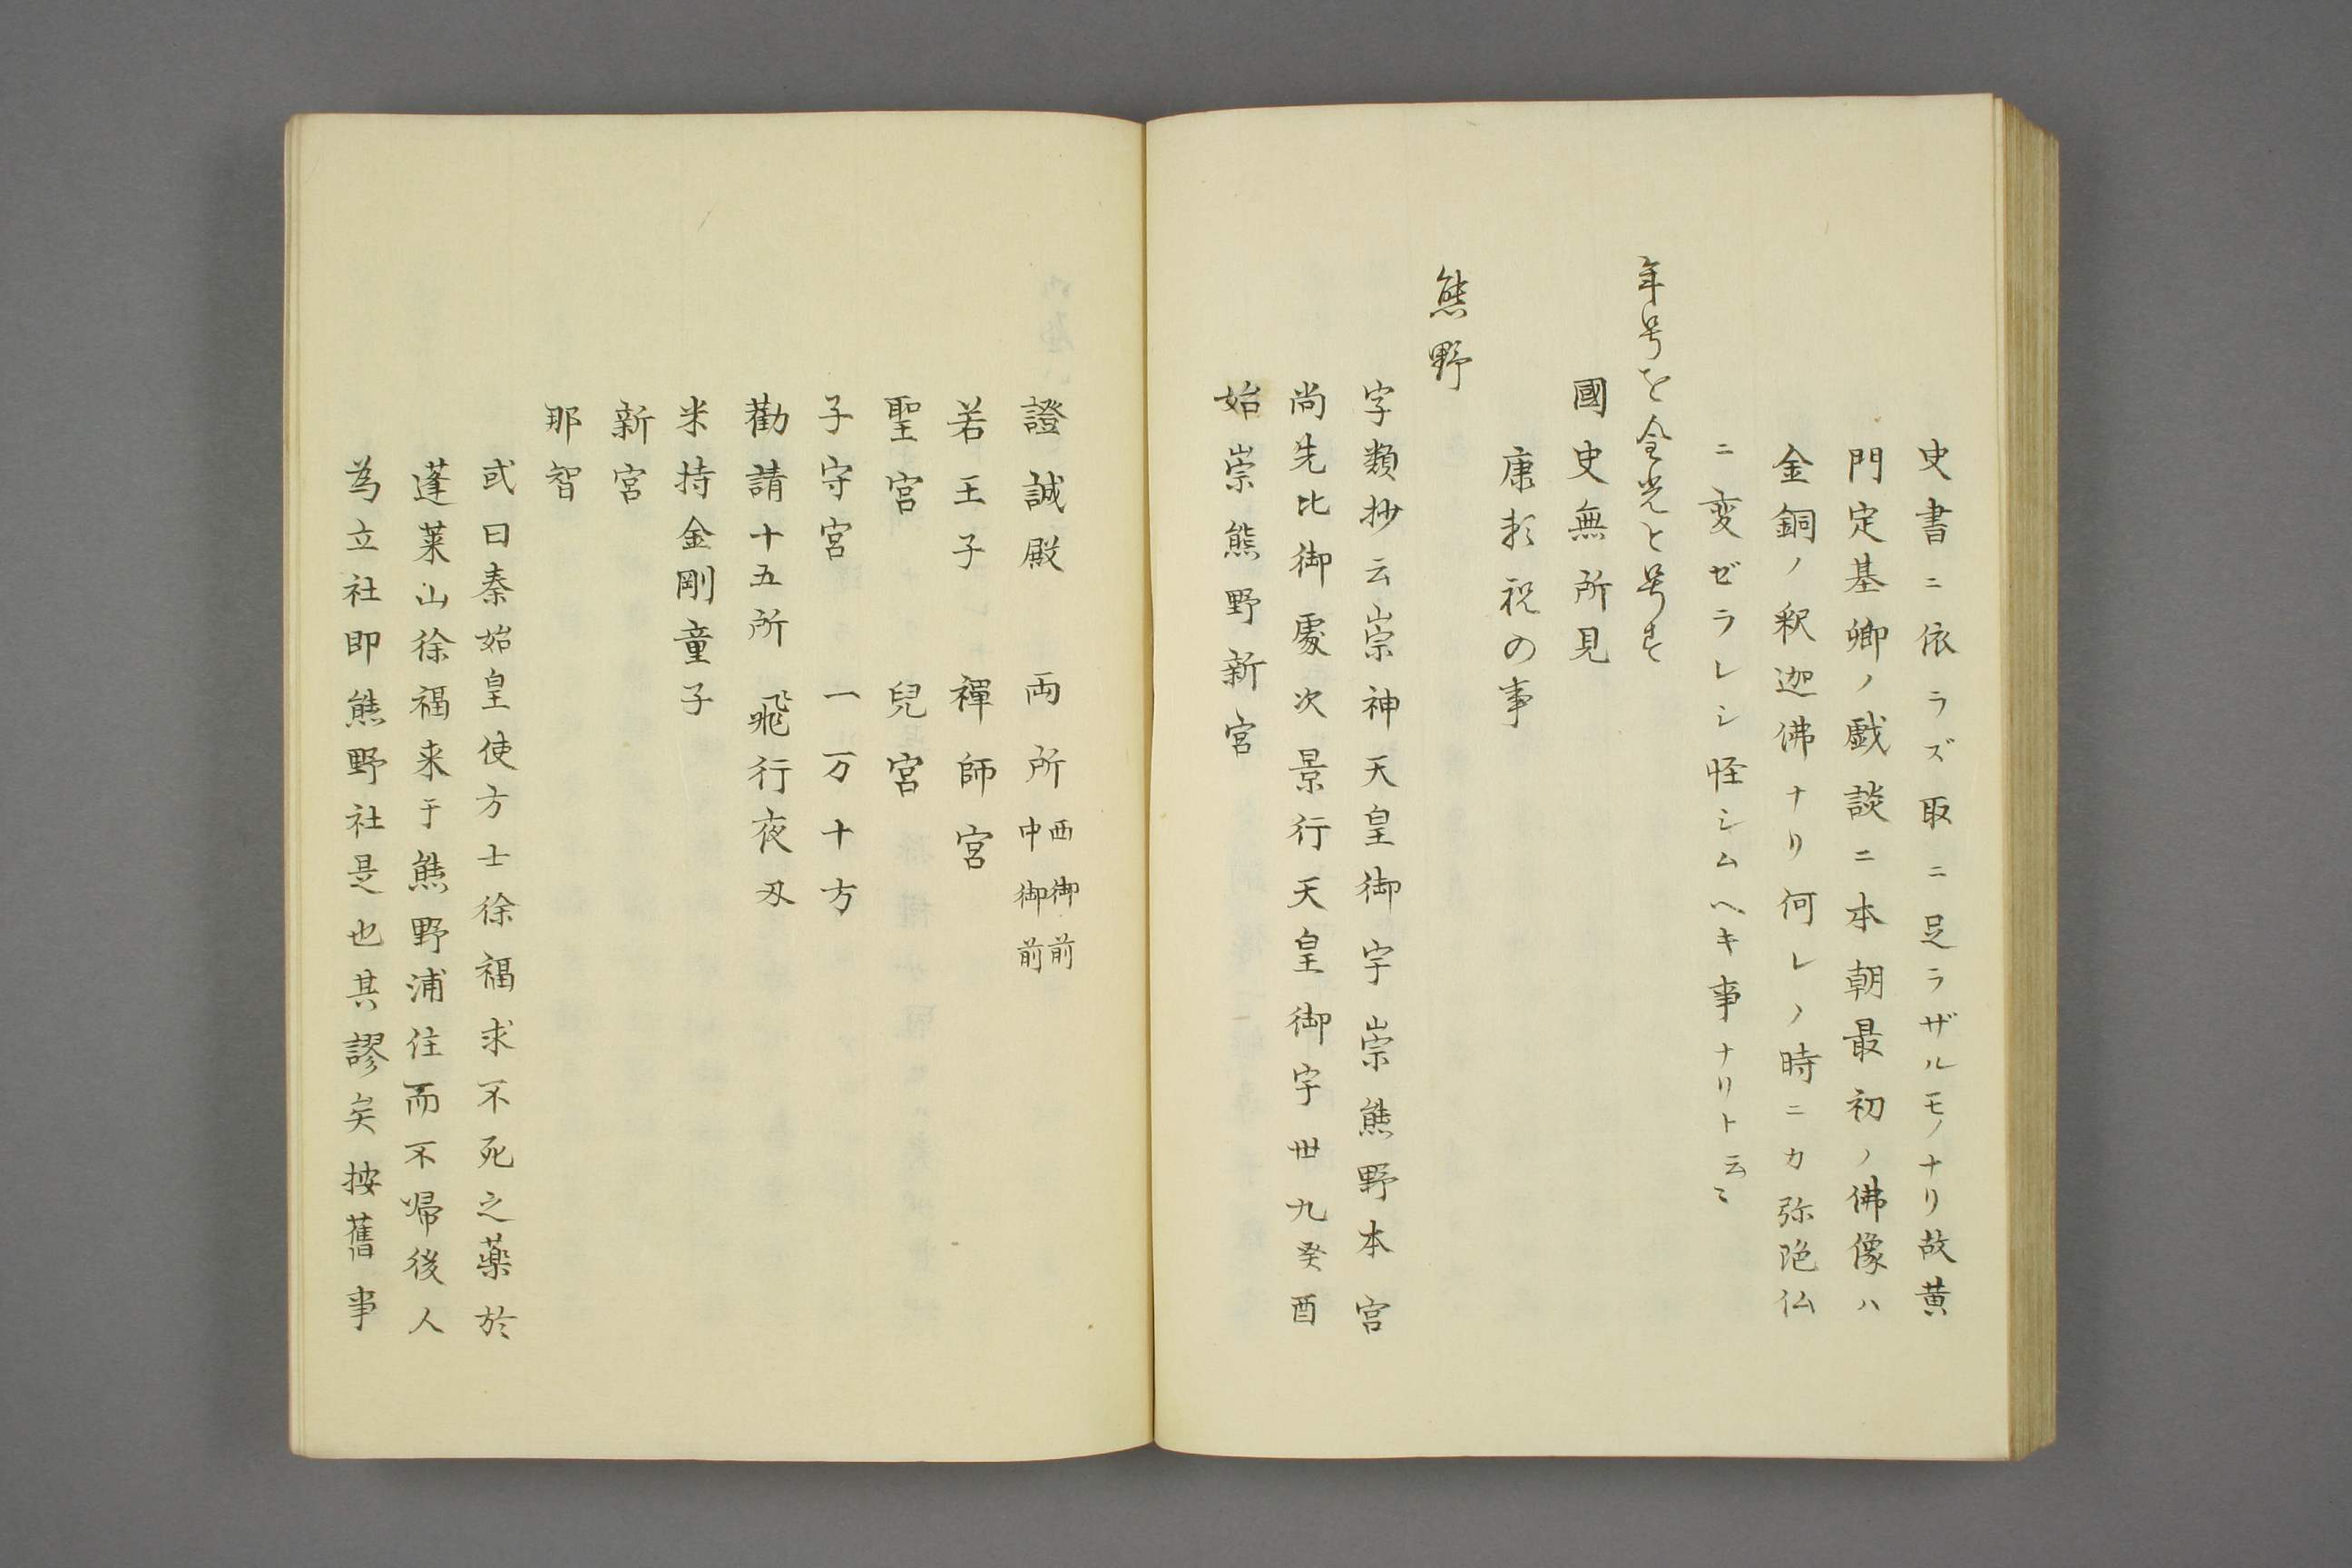 史書ニ依ラズ取ニ足ラザルモノナリ故黄
門定基卿ノ戯談ニ本朝最初ノ佛像ハ
金銅ノ釈迦佛ナリ何レノ時ニカ弥陀仏
ニ変ゼラレシ怪シムヘキ事ナリト云〻
年号を金光と号す
國史無所見
康頼祝の事
熊野
字類抄云崇神天皇御宇崇熊野本宮
尚先比御處次景行天皇御宇卌九癸酉
始崇熊野新宮
證誠殿 両所 西御前 中御前
若王子 禪師宮
聖宮 兒宮
子守宮 一万十万
勸請十五所 飛行夜叉
米持金剛童子
新宮
那智
或曰秦始皇使方士徐福求不死之藥於
蓬莱山徐福来于熊野浦住而不帰後人
為立社即熊野社是也其謬矣按舊事